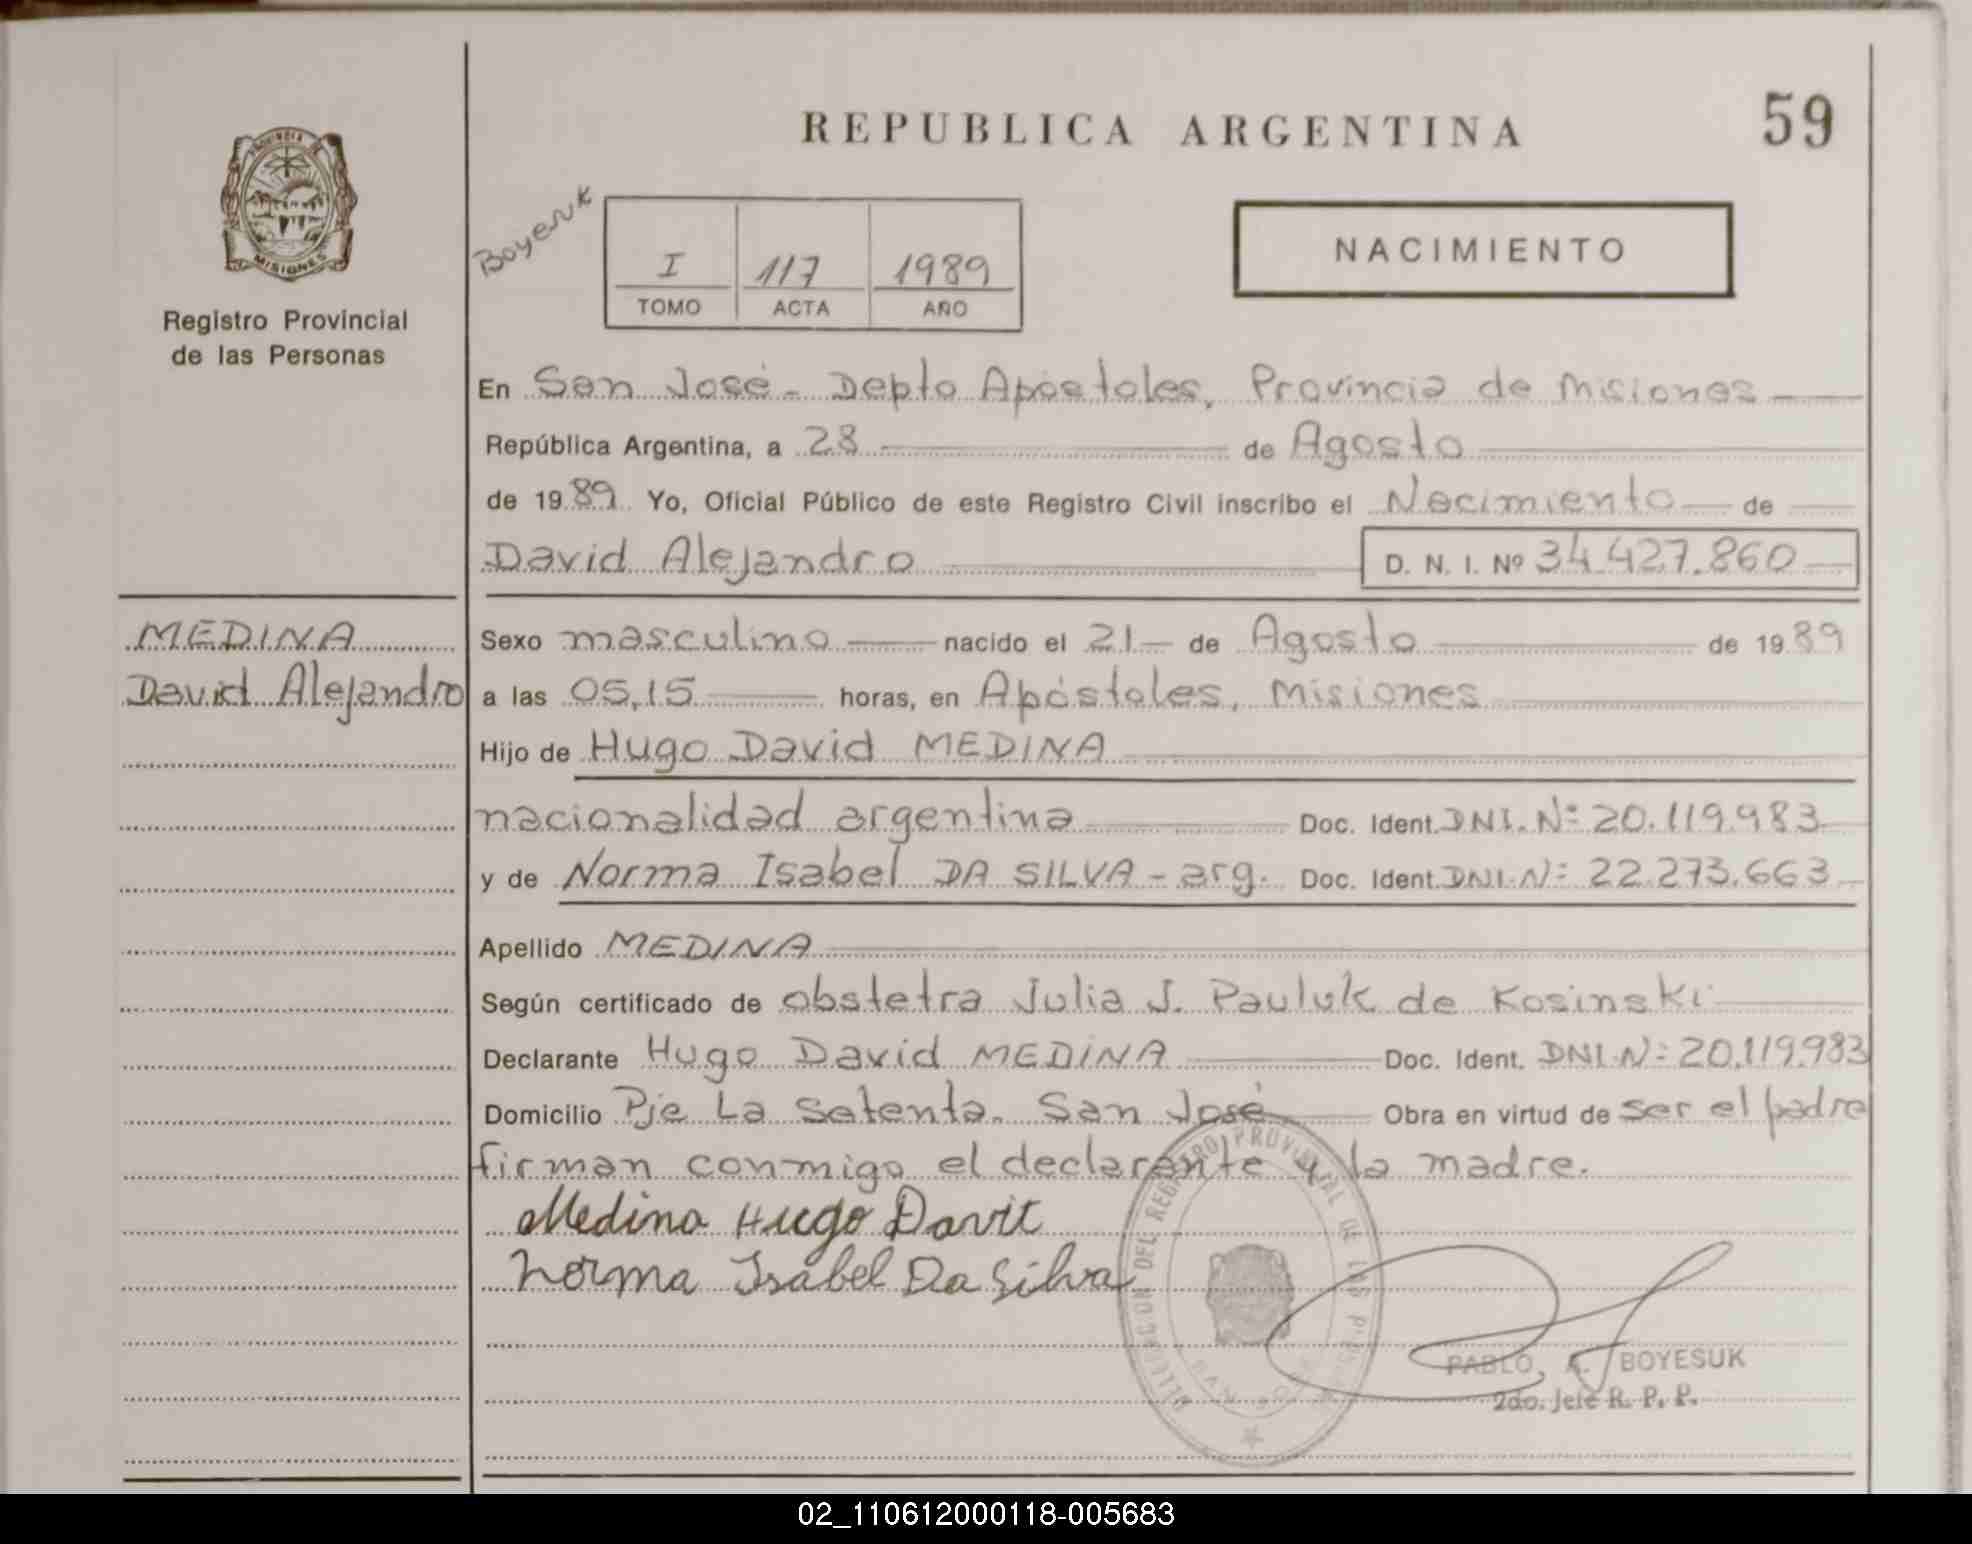 REPUBLICA ARGENTINA
59
PROVINCIA DE
MISIONES
Registro Provincial
de las Personas
Boyesuk
I 117 1989
TOMO ACTA AÑO
NACIMIENTO
En San José - Depto Apóstoles, Provincia de Misiones
República Argentina, a 28 de Agosto
de 1989 Yo, Oficial Público de este Registro Civil inscribo el Nacimiento de
David Alejandro D. N. I. Nº 34.427.860
MEDINA
David Alejandro
Sexo masculino nacido el 21 de Agosto de 1989
a las 05,15 horas, en Apóstoles, Misiones
Hijo de Hugo David MEDINA
nacionalidad argentina Doc. Ident. DNI. Nº 20.119.983
y de Norma Isabel DA SILVA - arg. Doc. Ident. DNI. Nº 22.273.663
Apellido MEDINA
Según certificado de obstetra Julia J. Pauluk de Kosinski
Declarante Hugo David MEDINA Doc. Ident. DNI. Nº 20.119.983
Domicilio Pje La Setenta. San José Obra en virtud de ser el padre
firman conmigo el declarante y la madre.
Medina Hugo Davit
Norma Isabel Da Silva
DELEGACION DEL REGISTRO PROVINCIAL DE LAS
PABLO A. BOYESUK
2do. Jefe R. P. P.
02_110612000118-005683